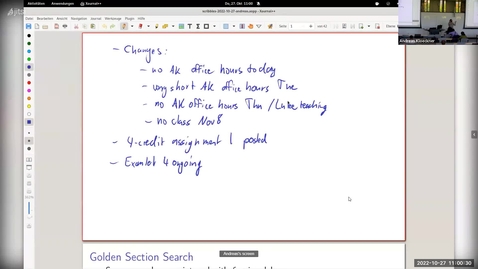 Aktivitäten
Anwendungen
Xournal++
Do, 27. Okt 11:00
Datei Bearbeiten Ansicht Navigation Journal Werkzeuge Plugin Hilfe
- Changes:
- no AK office hours today
- very short AK office hours Tue
- no AK office hours Thu / Luke teaching
- no class Nov 8
- 4-credit assignment 1 posted
- Examlet 4 ongoing
Golden Section Search
Andreas's screen
2022-10-27 11:00:30